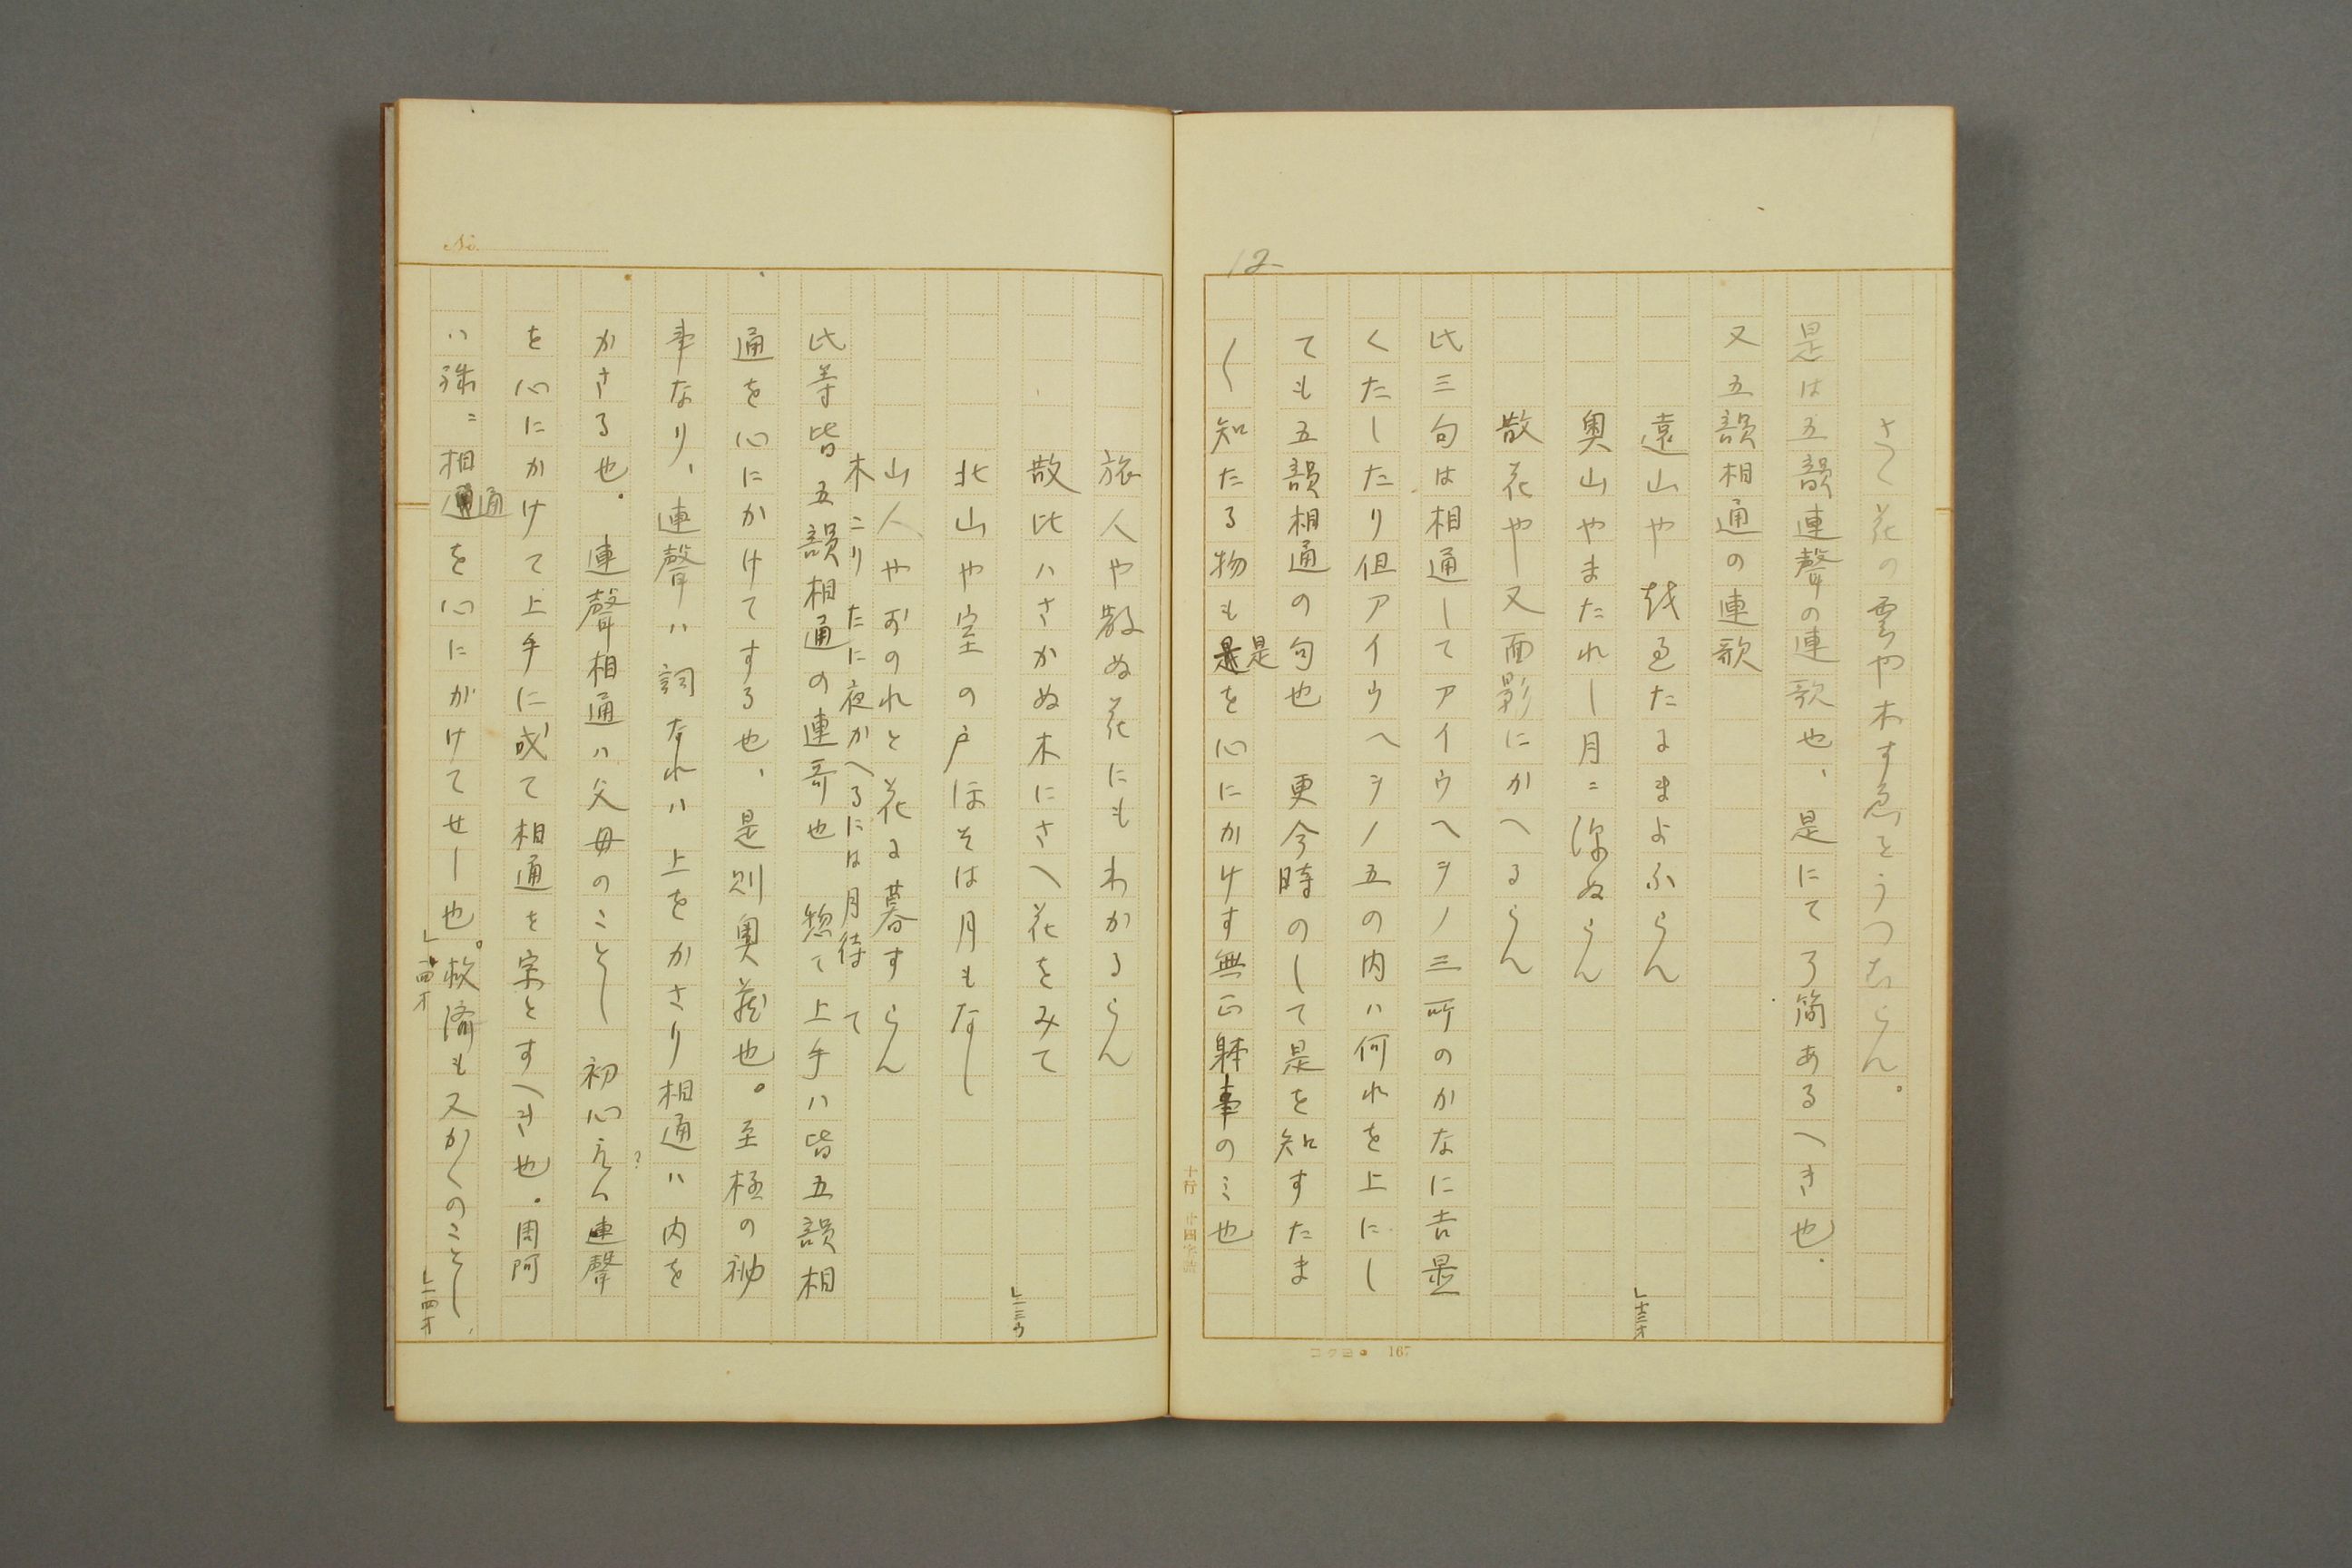 12
さく花の雲やわすゑとうつむらん。
是は五韻連聲の連歌也、是にて了簡あるへき也.
又五韻相通の連歌
遠山や越るたよまよふらん
」十三オ
奥山やまたれし月ニ深ぬらん
散花や又面影にかへるらん
此三句は相通してアイウヘヲノ三所のかなに吉是
くたしたり但アイウヘヲノ五の内ハ何れを上にし
ても五韻相通の句也 更今時のして是を知すたま
〳〵知たる物も是を心にかけす無正躰事のミ也
十行 廿四字詰
コクヨ 167
No.
旅人や散ぬ花にもわかるらん
散比ハさかぬ木にさへ花をみて
」一三ウ
北山や室の戸ほそは月もなし
山人やおのれと花よ暮すらん
木こりたに夜かへるには月待て
此等皆五韻相通の連哥也 惣て上手ハ皆五韻相
通を心にかけてする也、是則奥藏也。至極の秘
事なり、連聲ハ詞なれハ上をかさり相通ハ内を
かさる也. 連聲相通ハ父母のことし 初心ハ連聲
を心にかけて上手に成て相通を宗とすへき也.周阿
ハ殊ニ相通を心にかけてせし也。救済も又かくのことし
」一四オ